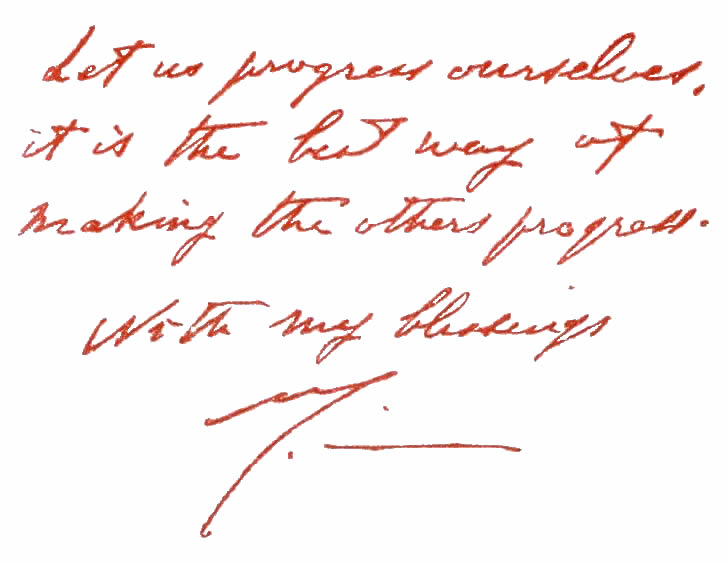 Let us progress ourselves,
it is the best way of
making the others progress.
With my blessings